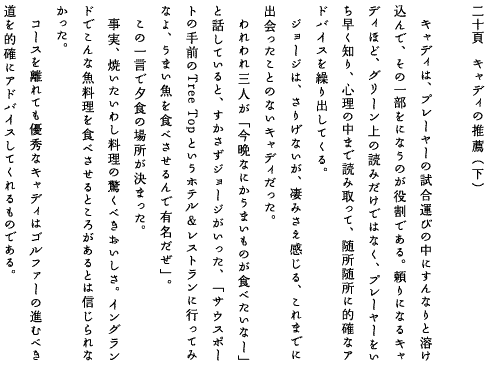 二十頁　キャディの推薦（下）
キャディは、プレーヤーの試合運びの中にすんなりと溶け
込んで、その一部をになうのが役割である。頼りになるキャ
ディほど、グリーン上の読みだけではなく、プレーヤーをい
ち早く知り、心理の中まで読み取って、随所随所に的確なア
ドバイスを繰り出してくる。
ジョージは、さりげないが、凄みさえ感じる、これまでに
出会ったことのないキャディだった。
われわれ三人が「今晩なにかうまいものが食べたいなー」
と話していると、すかさずジョージがいった、「サウスポー
トの手前のTree Topというホテル＆レストランに行ってみ
なよ、うまい魚を食べさせるんで有名だぜ」。
この一言で夕食の場所が決まった。
事実、焼いたいわし料理の驚くべきおいしさ。イングラン
ドでこんな魚料理を食べさせるところがあるとは信じられな
かった。
コースを離れても優秀なキャディはゴルファーの進むべき
道を的確にアドバイスしてくれるものである。